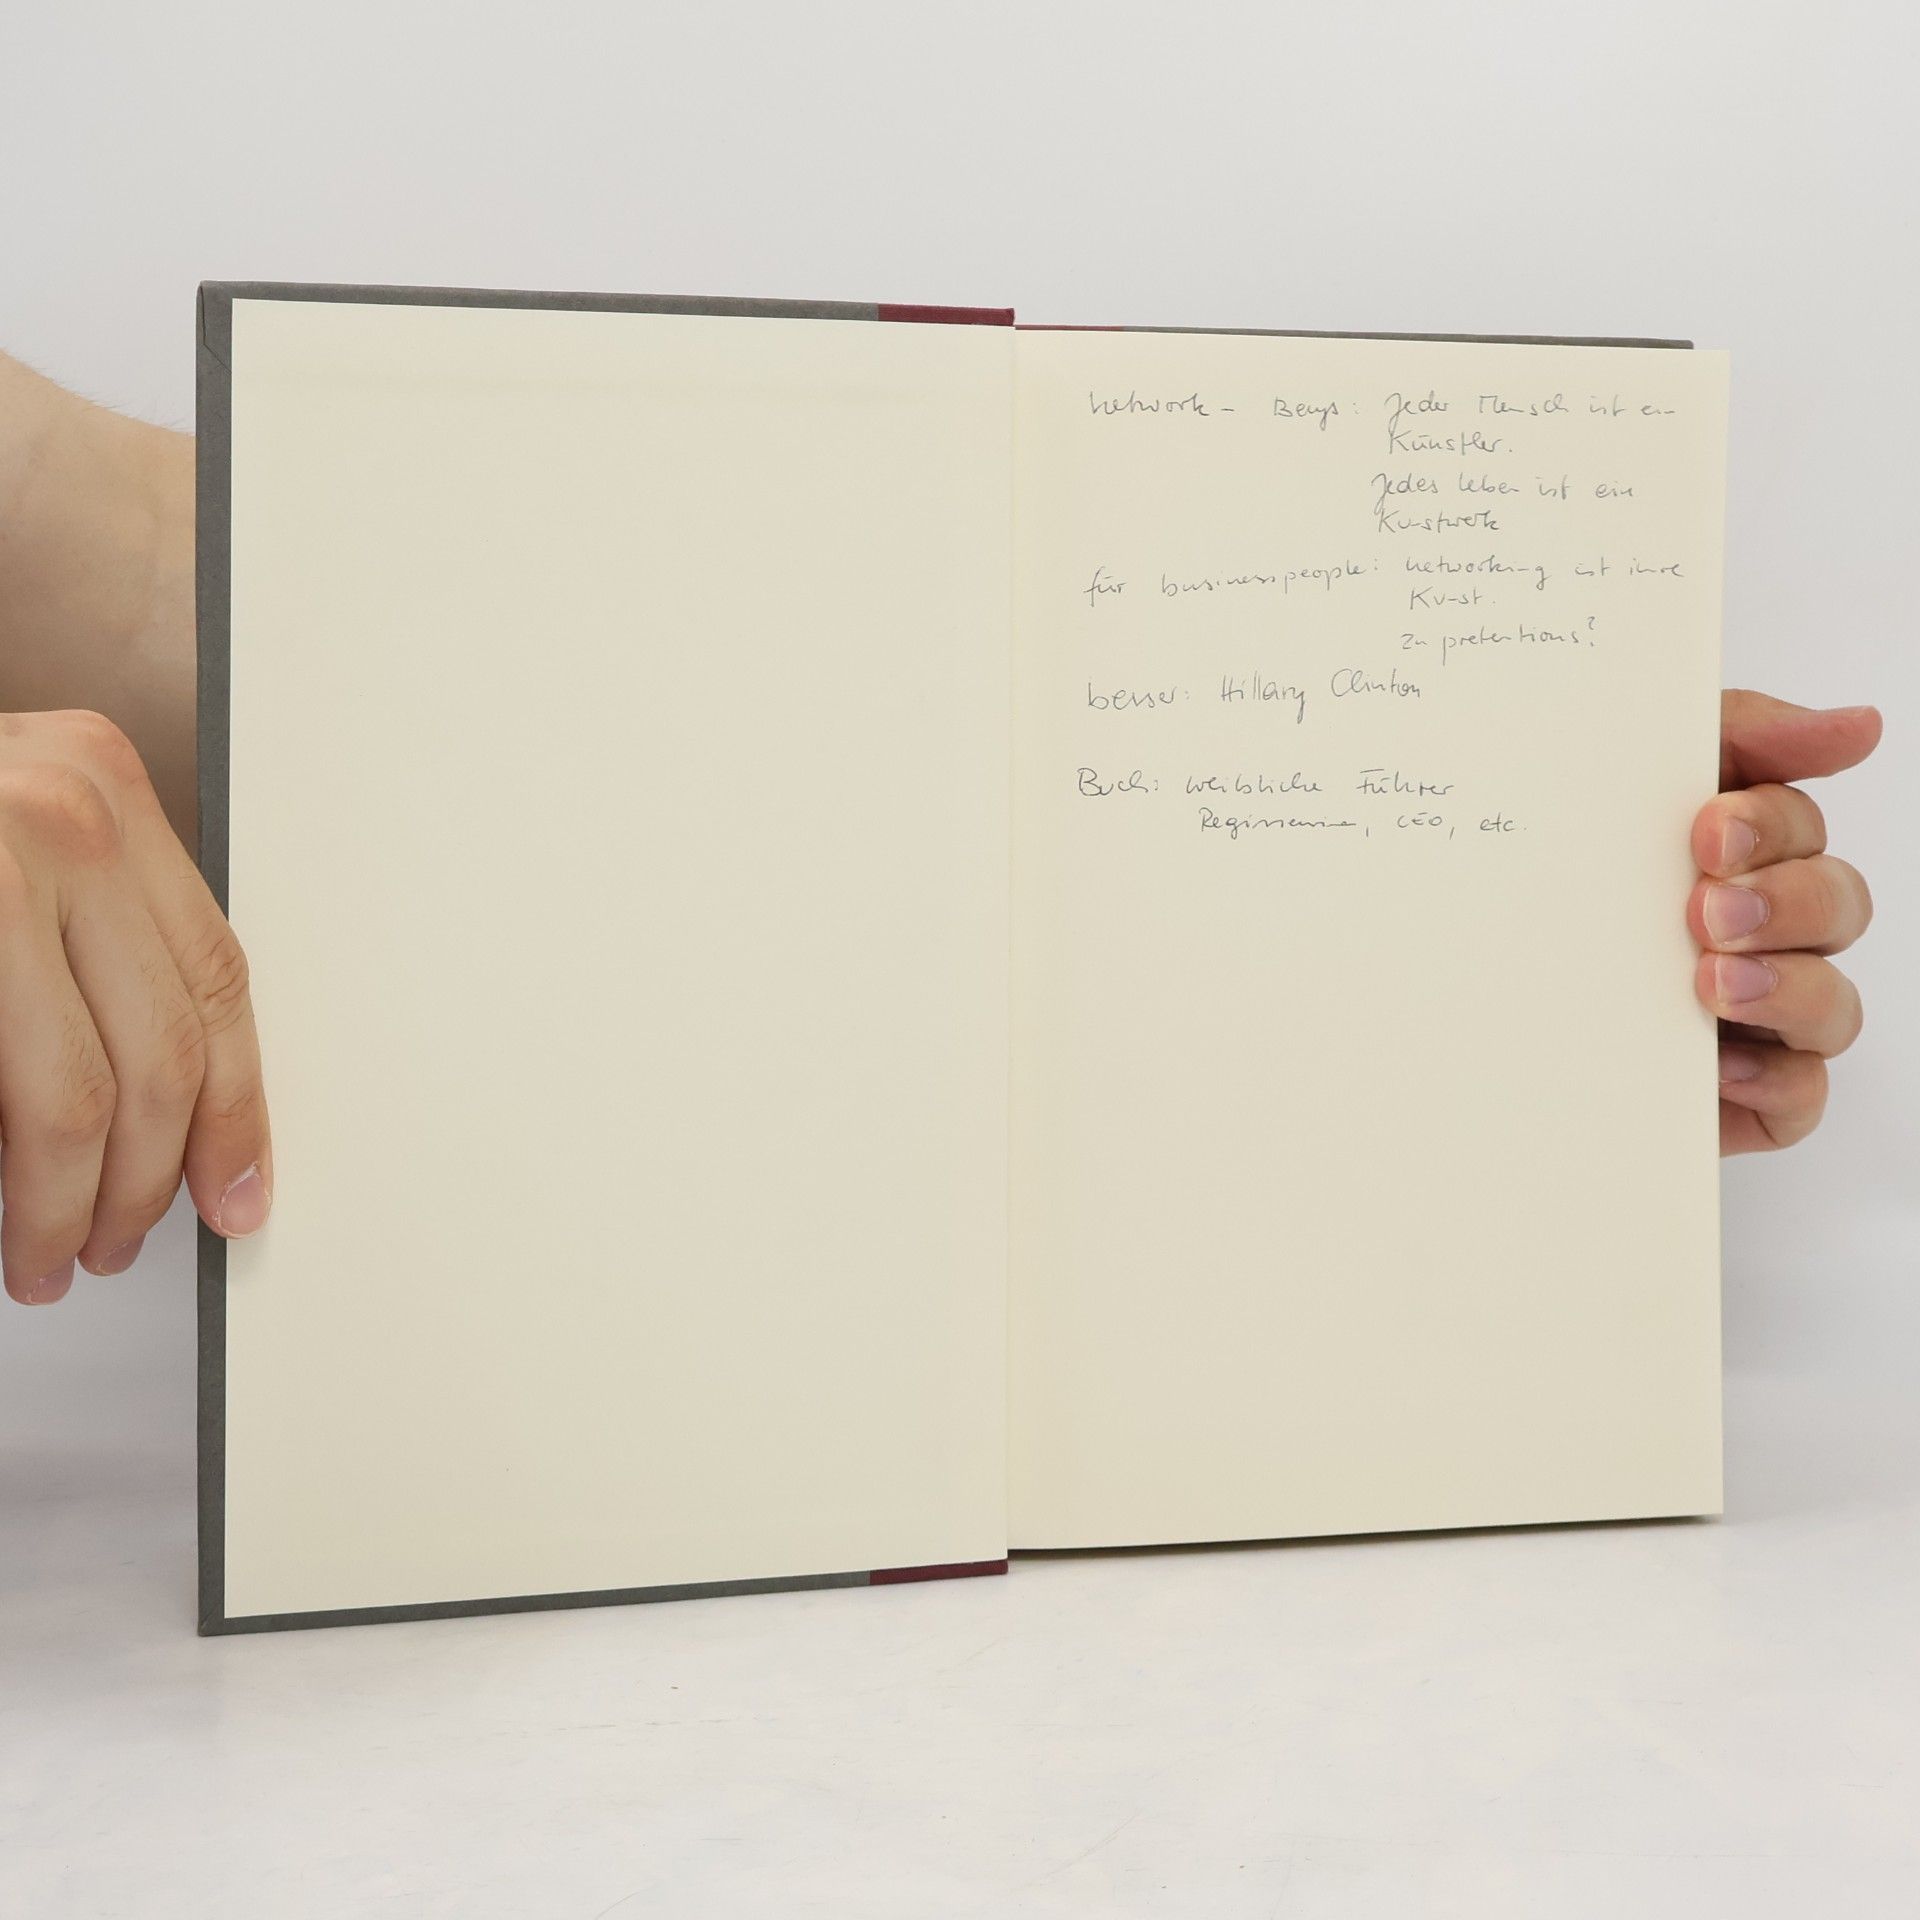 network – Beuys: Jeder Mensch ist ein
Künstler.
Jedes Leben ist ein
Kunstwerk
für businesspeople: networking ist ihre
Kunst.
zu pretentious?
besser: Hillary Clinton
Buch: weibliche Führer
Regisseurin, CEO, etc.